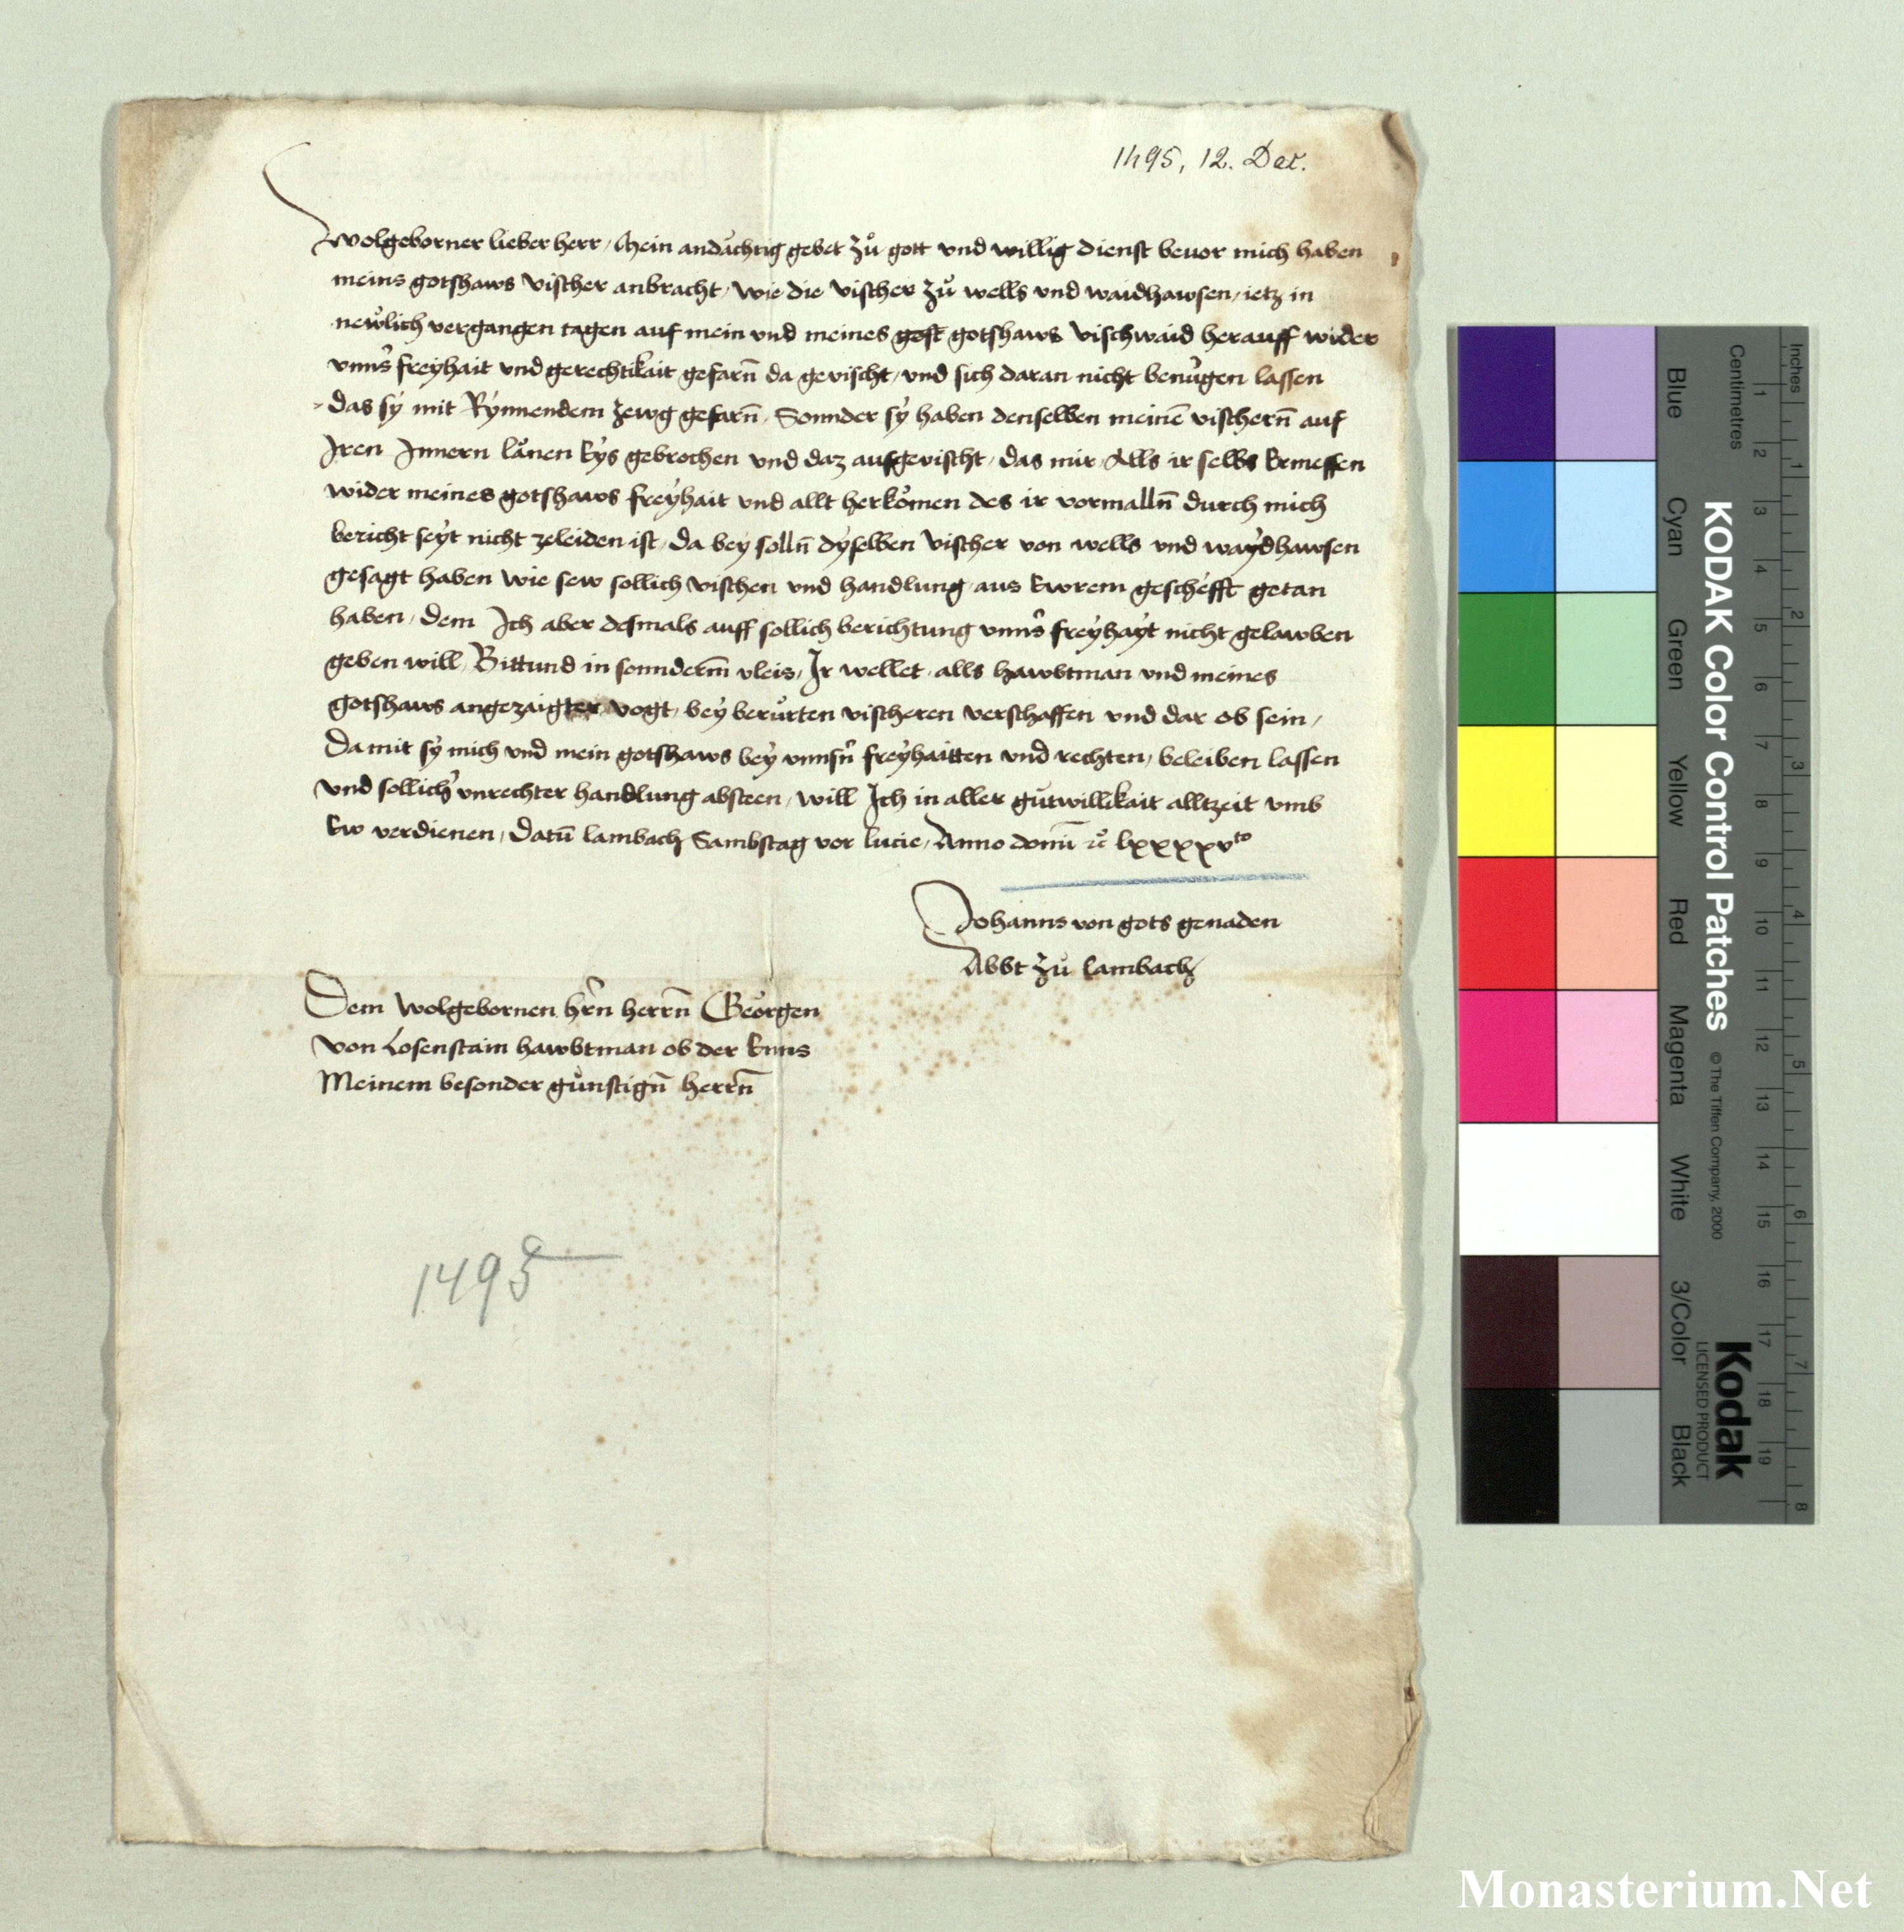 1495, 12. Dec.
Wolgeborner lieber herr / Mein andächtig gebet zů gott vnd willig dienst beuor mich haben
meins gotshaws vischer anbracht / wie die vischer zů wells vnd waidhawsen / ietz in
newlich vergangen tagen auf mein vnd meines gotshaws vischwaid herauff wider
vnns̉ freyhait vnd gerechtikait gefarn̄ da gevischt / vnd sich daran nicht benůgen lassen
das sÿ mit Rÿnnendem zewg gefarn̄ / Sonnder sÿ haben denselben meinē vischern̄ auf
Iren Innern länen Eÿs gebrochen vnd daz aufgevischt / das mir Alls ir selbs Ermessen
wider meines gotshaws freÿhait vnd allt herkomen des ir vormalln̄ durch mich
bericht seÿt nicht zeleiden ist / da bey solln̄ dÿselben vischer von wells vnd waÿdhawsen
gesagt haben wie sew sollich vischen vnd handlung aus Ewrem geschefft getan
haben / dem Ich aber desmals auff sollich berichtung vnns̉ freÿhaÿt nicht gelawben
geben will / Bittund in sonnderm̄ vleis / Ir wellet alls hawbtman vnd meines
gotshaws angezaigter vogt / beÿ berůrten vischeren verschaffen vnd dar ob sein /
Damit sÿ mich vnd mein gotshaws beÿ vnnsn̉ freÿhaitten vnd rechten / beleiben lassen
vnd sollich̉ vnrechter handlung absteen / will Ich in aller gůtwillikait alltzeit vmb
Ew verdienen / Datū lambach Sambstag vor lucie / Anno domī ꝛc̉ lxxxxvto
Johanns von gots genaden
Abbt zů lambach
Dem wolgebornen hr̉n herrn̄ Georgen
von Losenstain hawbtman ob der Enns
Meinem besonder gůnstign̄ herrn̄
1495
KODAK Color Control Patches
© The Tiffen Company, 2000
Kodak
LICENSED PRODUCT
Inches
1 2 3 4 5 6 7 8
Centimetres
1 2 3 4 5 6 7 8 9 10 11 12 13 14 15 16 17 18 19
Blue
Cyan
Green
Yellow
Red
Magenta
White
3/Color
Black
Monasterium.Net